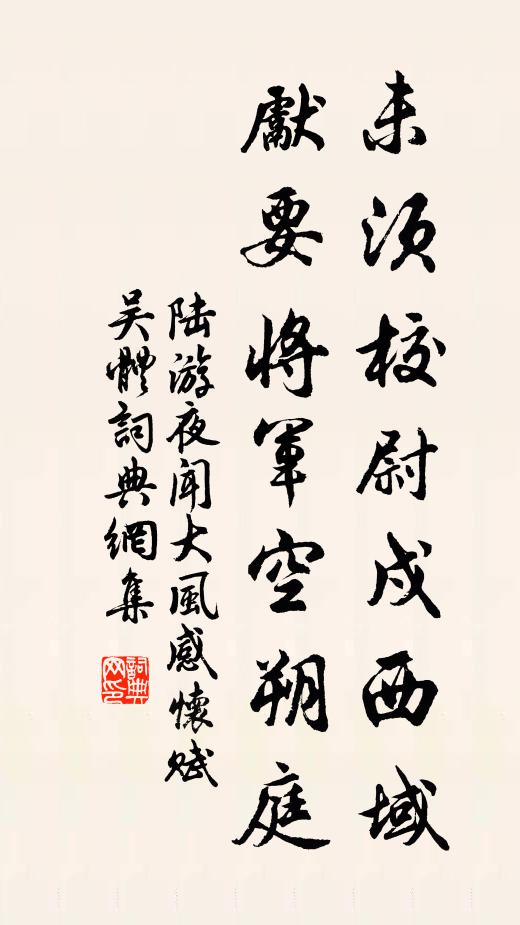 未須校尉戍西域
厭要將軍空朔庭
陆游夜闻大風感懷賦
吴體詞典網集
詞典网印